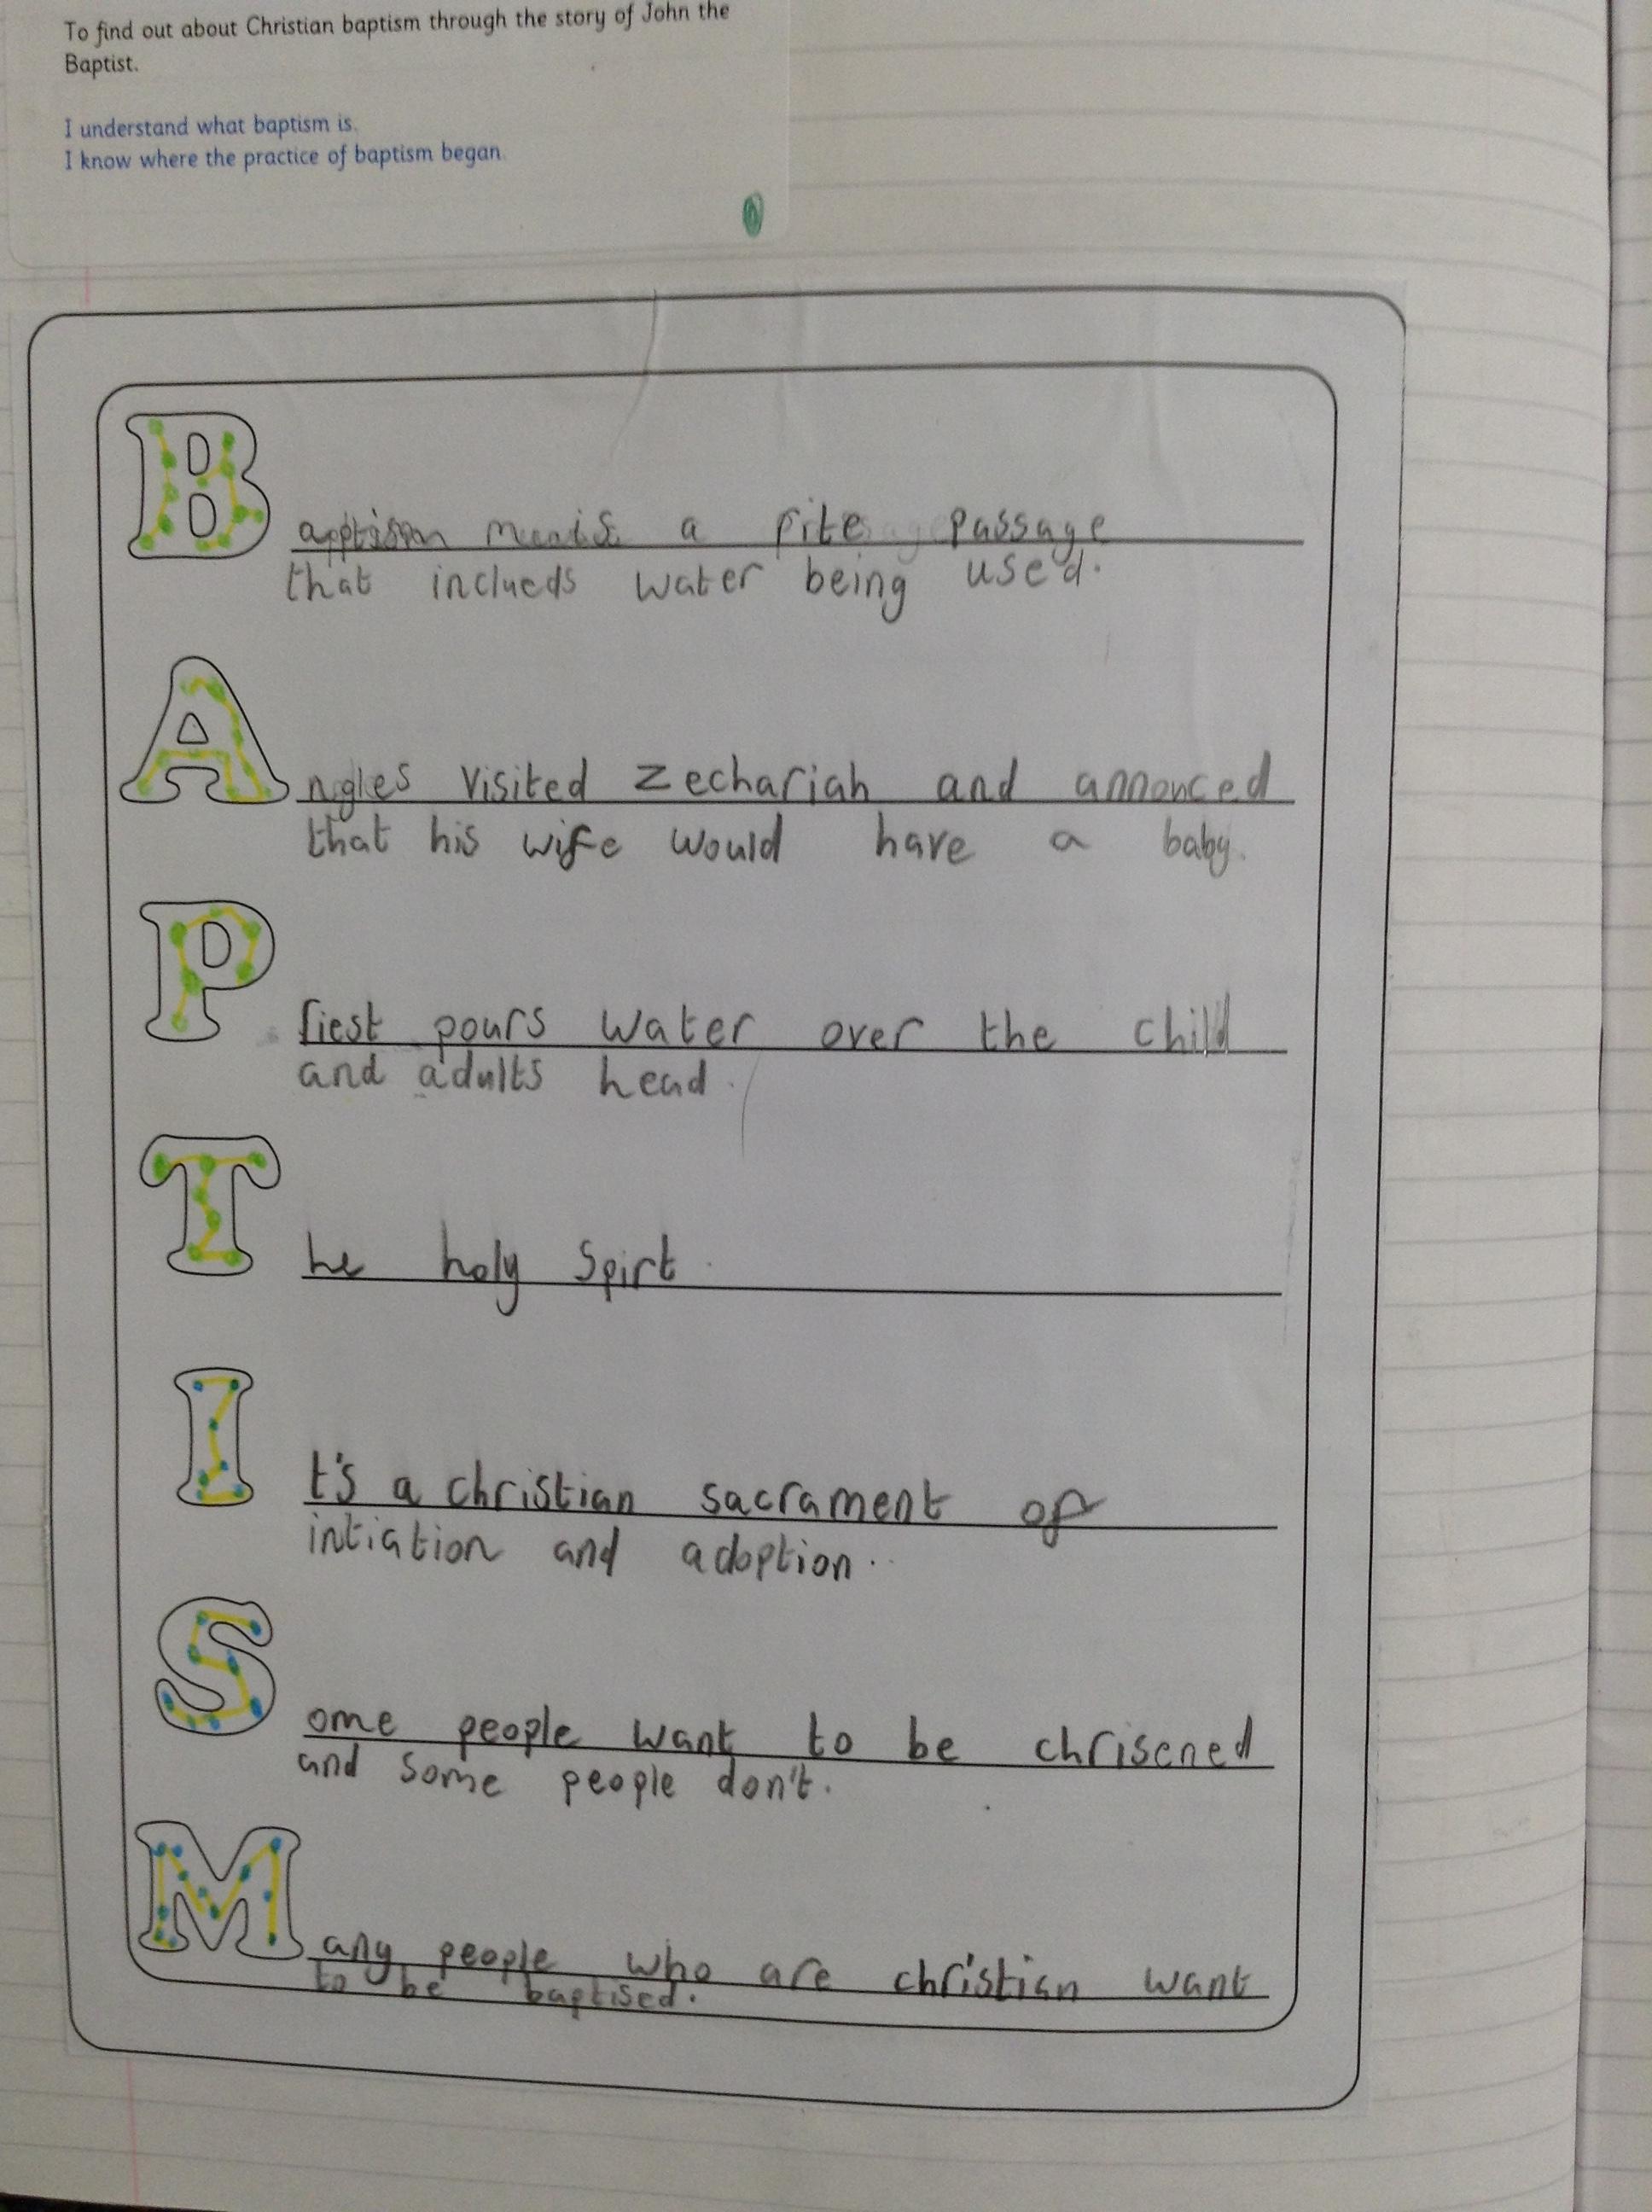 To find out about Christian baptism through the story of John the
Baptist.
I understand what baptism is.
I know where the practice of baptism began.
Bapptism a rite passage
that inclueds water being used.
Angles visited Zechariah and annonced
that his wife would have a baby.
Priest pours water over the child
and adults head.
The holy Spirt.
It's a christian sacrament of
intiation and adoption.
Some people want to be chrisened
and some people don't.
Many people who are christian want
to be baptised.